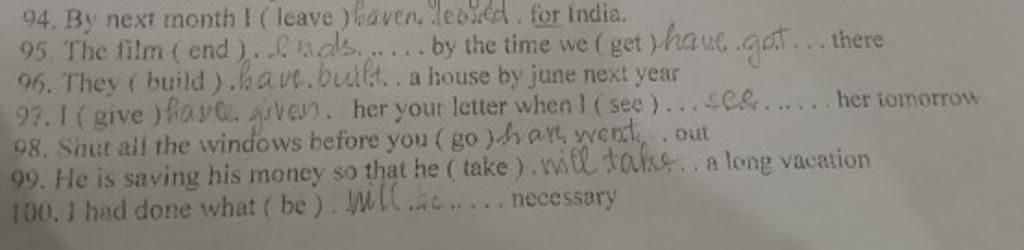 94. By next month I ( leave ) haven. leaved . for India.
95. The film ( end ) . ends. ..... by the time we ( get ) have .got ... there
96. They ( build ) . have. built. . a house by june next year
97. I ( give ) have. given. her your letter when I ( see ) ... see ...... her tomorrow
98. Shut all the windows before you ( go ) have went. . out
99. He is saving his money so that he ( take ) . will take. . a long vacation
100. I had done what ( be ) . will ..... necessary